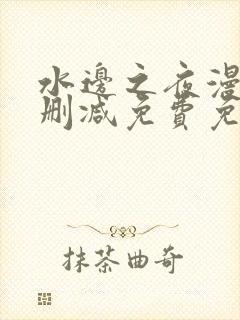 水邊之夜漫
刪減免費免
抹茶曲奇